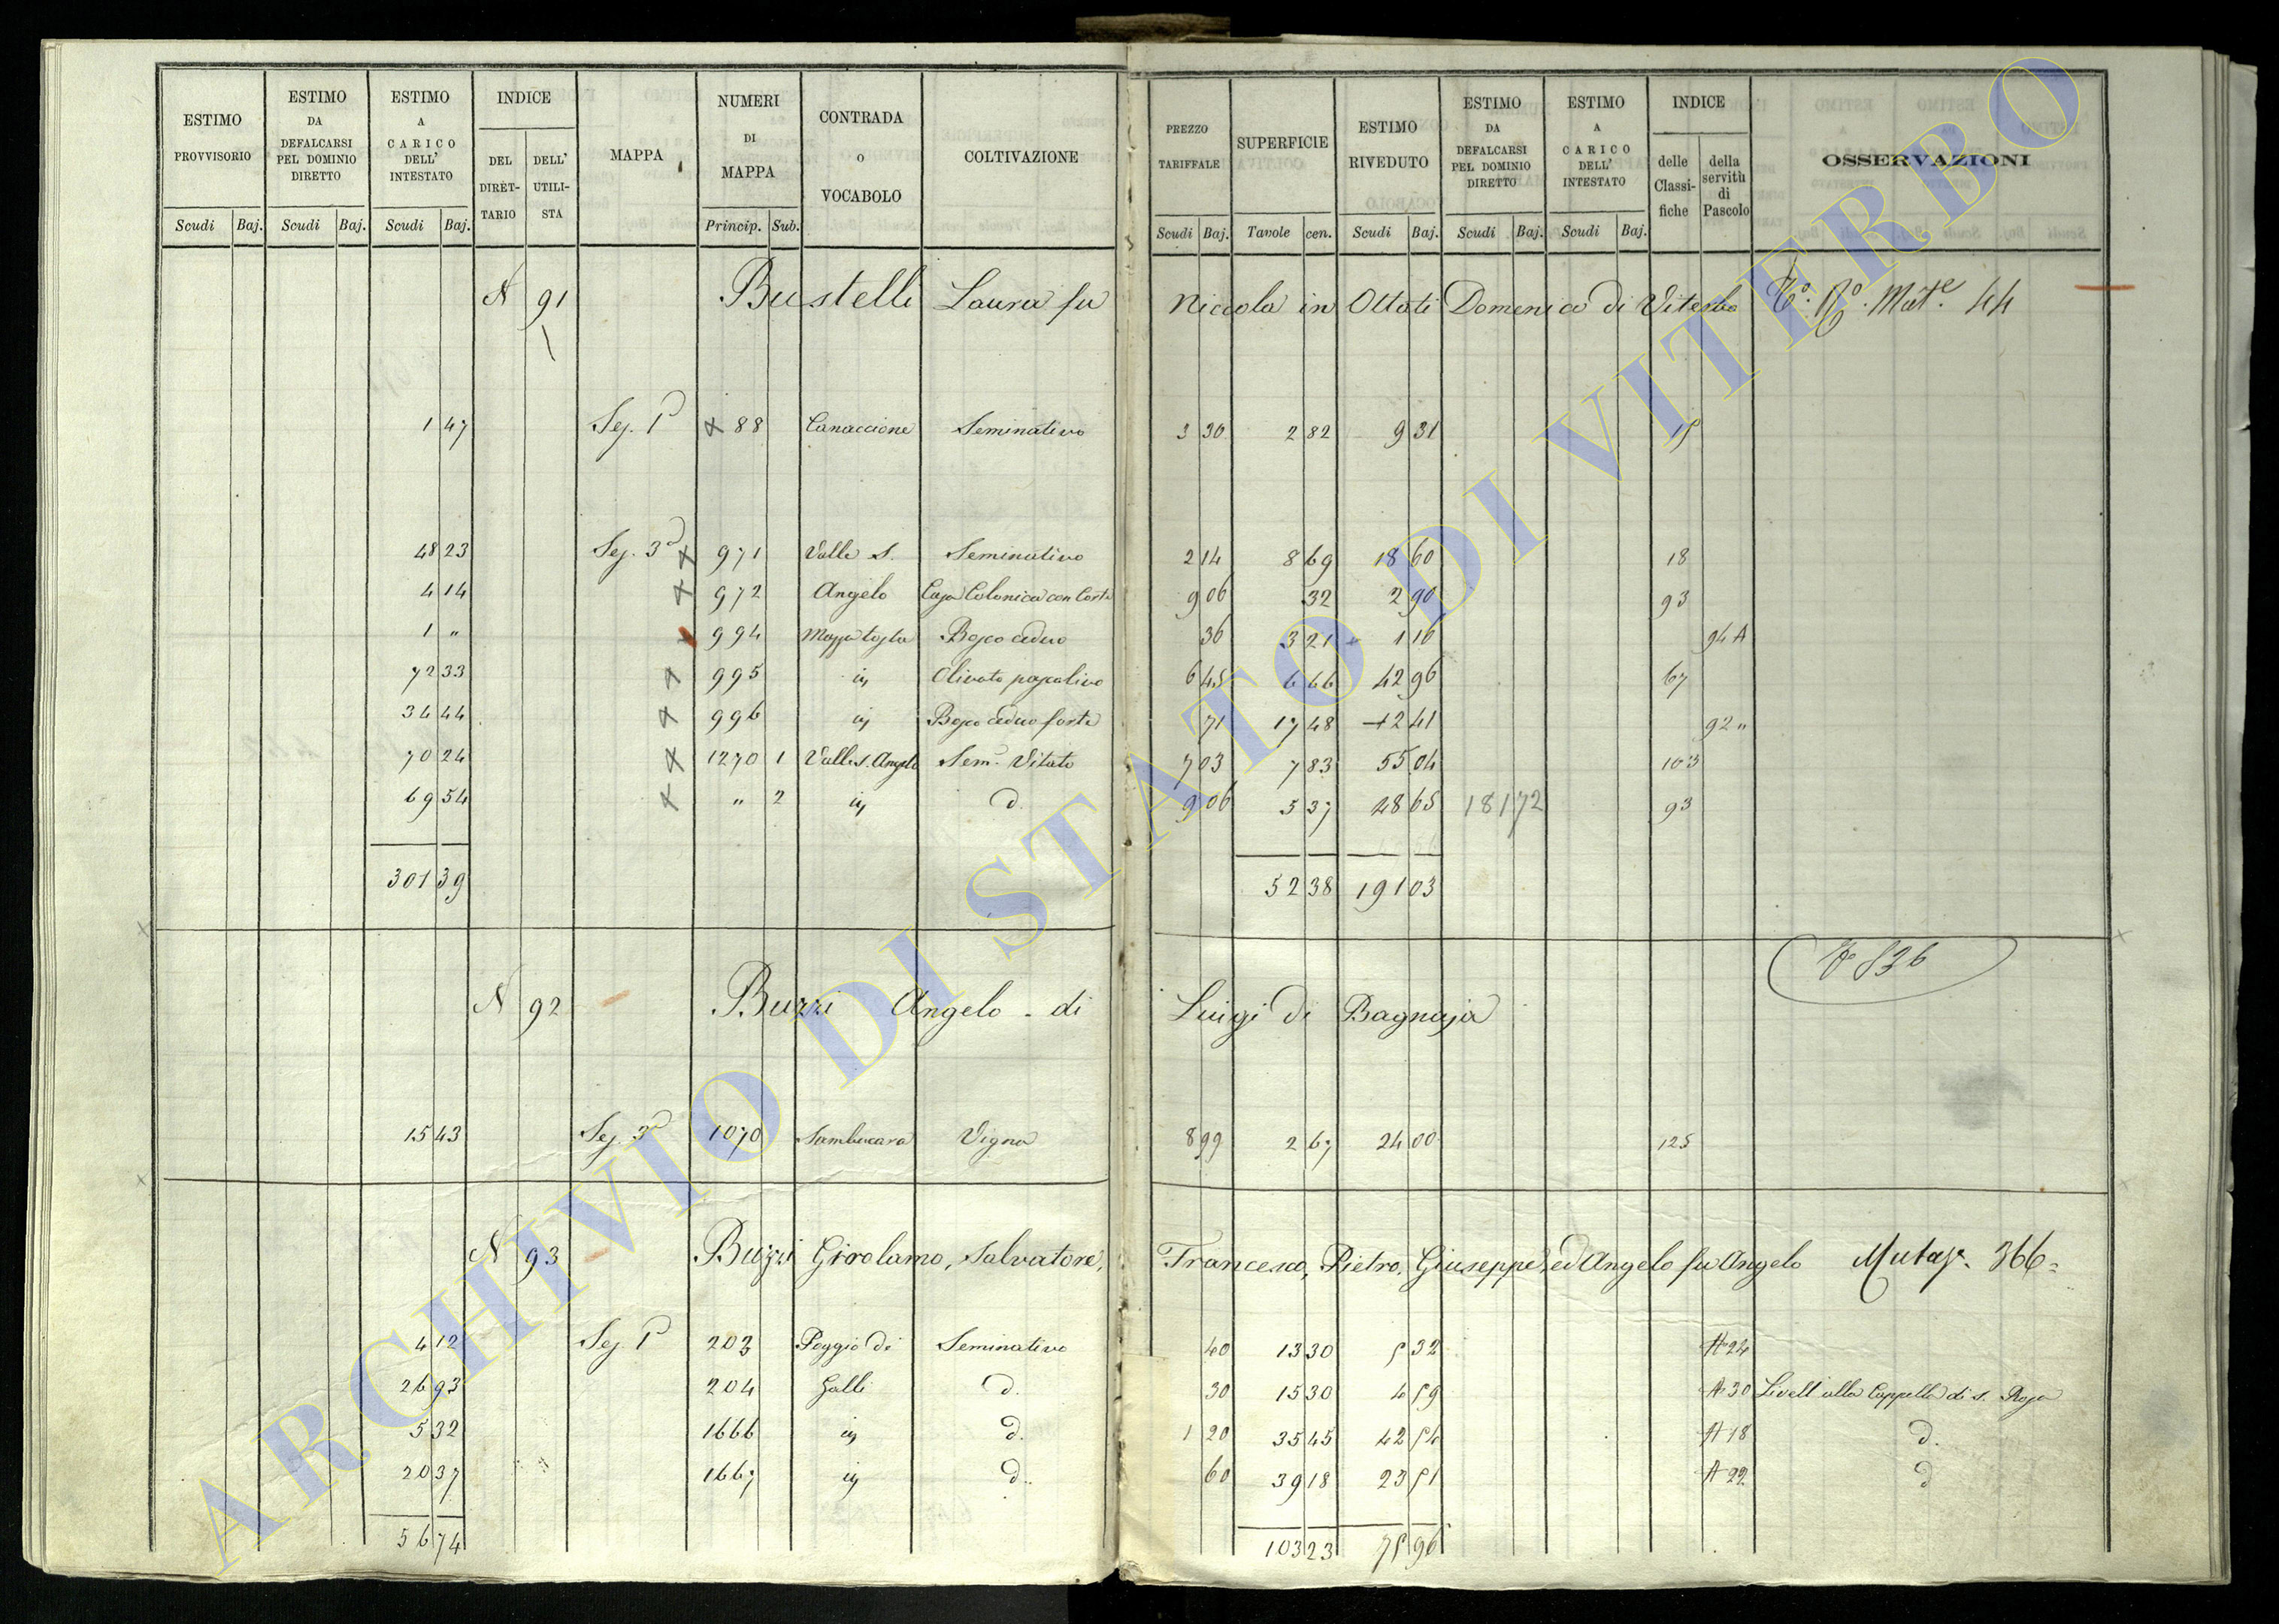 ESTIMO PROVVISORIO
ESTIMO DA DEFALCARSI PEL DOMINIO DIRETTO
ESTIMO A CARICO DELL' INTESTATO
INDICE
DEL DIRET- TARIO
DELL' UTILI- STA
MAPPA
NUMERI DI MAPPA
CONTRADA O VOCABOLO
COLTIVAZIONE
PREZZO TARIFFALE
SUPERFICIE
ESTIMO RIVEDUTO
ESTIMO DA DEFALCARSI PEL DOMINIO DIRETTO
ESTIMO A CARICO DELL' INTESTATO
INDICE
delle Classi- fiche
della servitù di Pascolo
OSSERVAZIONI
Scudi Baj. Scudi Baj. Scudi Baj. Princip. Sub. Scudi Baj. Tavole cen. Scudi Baj. Scudi Baj. Scudi Baj.
N 91 Bustelli Laura fu Niccola in Ottati Domenico di Viterbo 44
1 47 Sez. 1ª 88 Canaccione Seminativo 3 30 2 82 9 31
48 23 Sez. 3ª 971 Valle S. Seminativo 2 14 8 69 18 60 18
4 14 972 Angelo Casa Colonica con Corte 9 06 32 2 90 93
1 " 994 Bosco ceduo 36 3 21 1 16 94 A
72 33 995 Olivato pascolivo 6 45 6 66 42 96 67
34 44 996 Bosco ceduo forte 71 17 48 12 41 92 "
70 24 1270 1 Valle S. Angelo Sem. Vitato 7 03 7 83 55 04 103
69 54 " 2 d. 9 06 5 37 48 65 18172 93
301 39 52 38 191 03
N 92 Buzzi Angelo - di Luigi di Bagnaja 836
15 43 Sez. 3ª 1070 Sambucara Vigna 8 99 2 67 24 00 125
N 93 Buzzi Girolamo, Salvatore, Francesco, Pietro, Giuseppe, ed Angelo fu Angelo 366
4 12 Sez 1ª 203 Poggio di Seminativo 40 13 30 5 32 A 24
26 93 204 Galli d. 30 15 30 4 59 A 30 Livell alla Cappella di S.
5 32 1666 d. 1 20 35 45 42 54 A 18 d.
20 37 1667 d. 60 39 18 23 51 A 22 d
56 74 103 23 75 96
ARCHIVIO DI STATO DI VITERBO